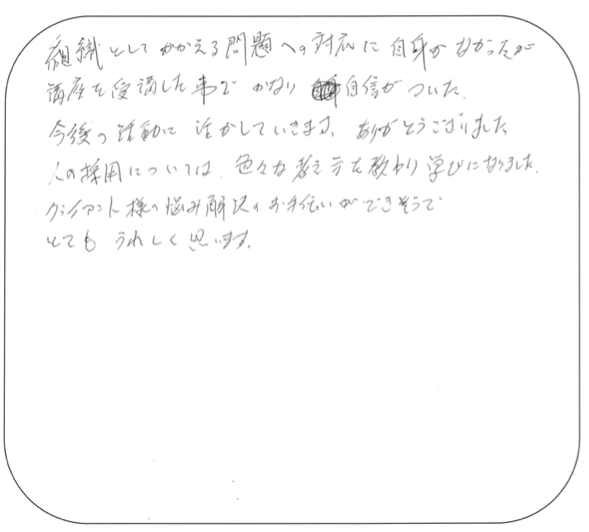 組織としてかかえる問題への対応に自身がなかったが
講座を受講した事でかなり自信がついた。
今後の活動に活かしていきます。ありがとうございました
人の採用については、色々な考え方を教わり学びになりました。
クライアント様の悩み解決のお手伝いができそうで
とてもうれしく思います。